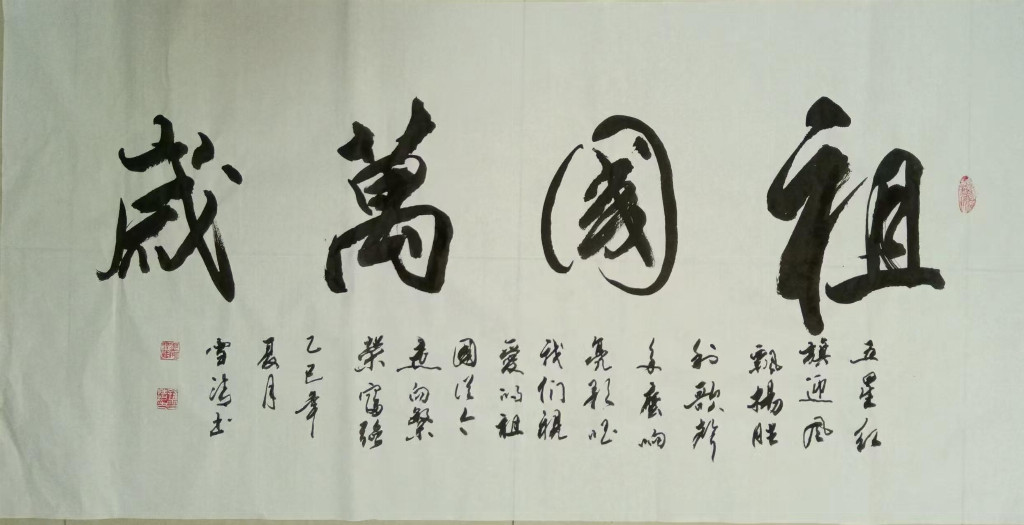 祖國萬歲
五星红
旗迎风
飄揚胜
利歌聲
多麼响
亮歌唱
我们親
愛的祖
國從今
走向繁
榮富強
乙巳年
夏月
雪 书